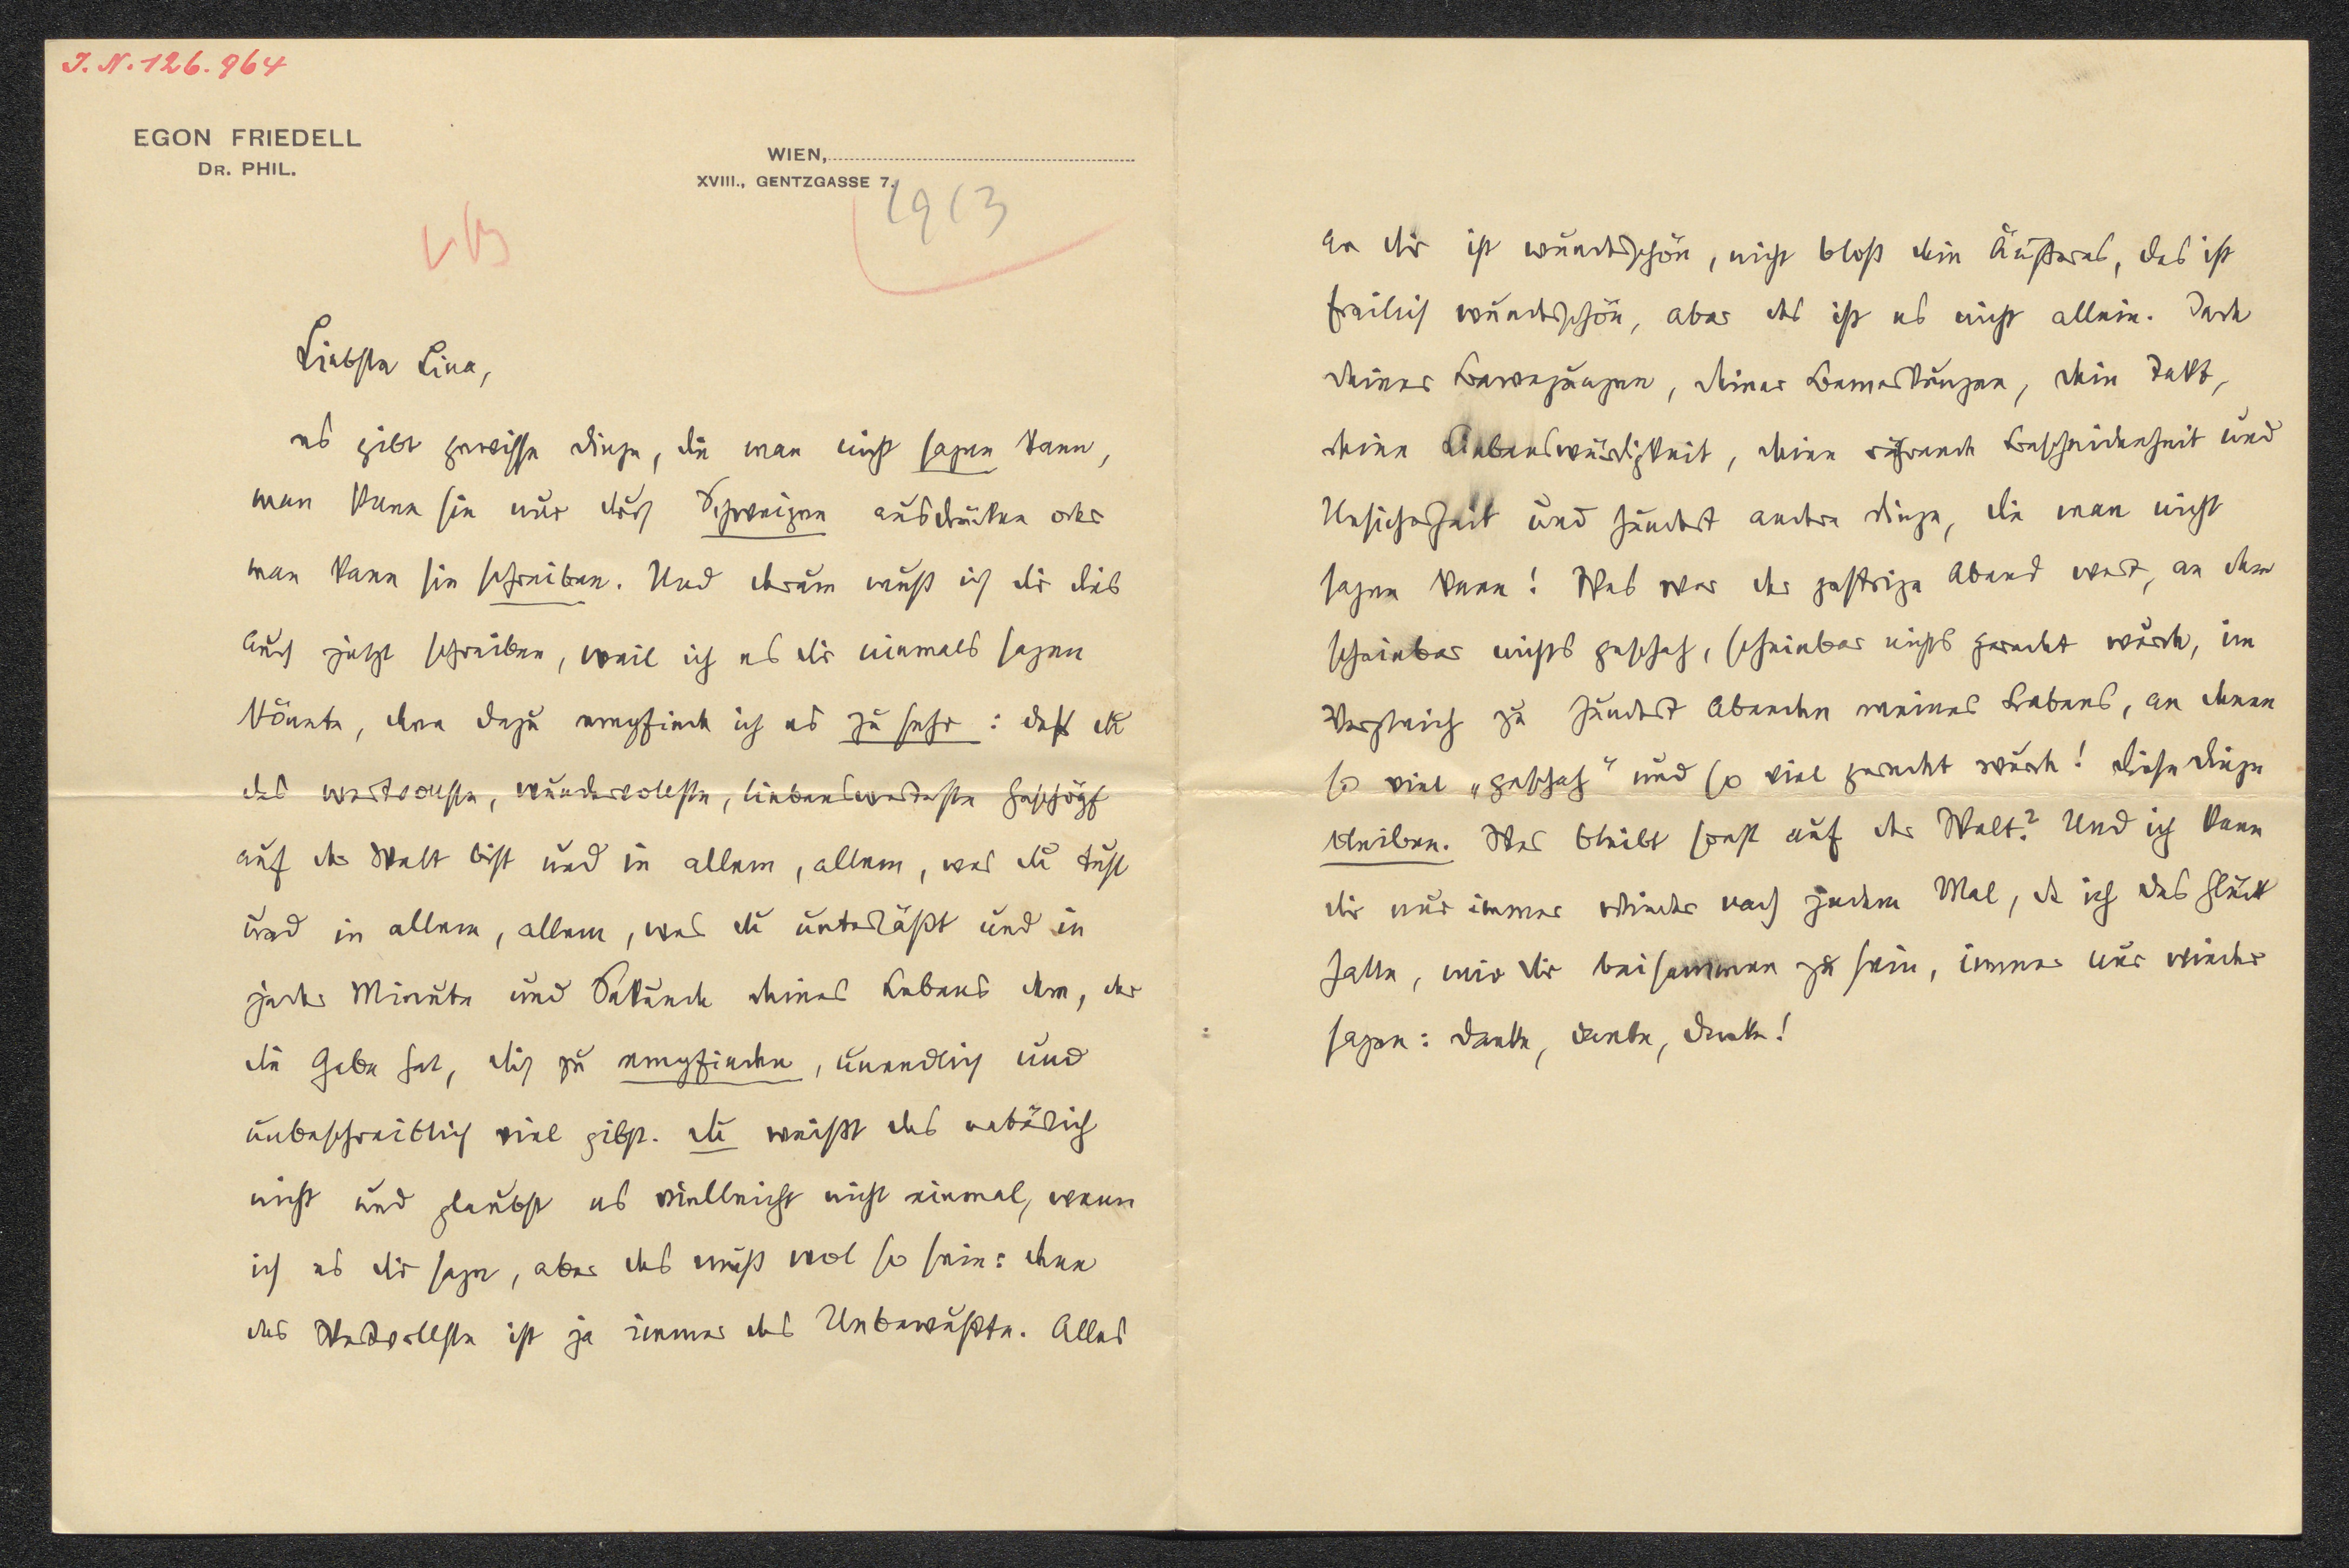 I. N. 126.964
EGON FRIEDELL
DR. PHIL.
WIEN,
XVIII., GENTZGASSE 7.
1913
Liebste Lina,
es gibt gewisse Dinge, die man nicht sagen kann,
man kann sie nur durch Schweigen ausdrücken oder
man kann sie schreiben. Und darum muß ich dir dies
auch jetzt schreiben, weil ich es dir niemals sagen
könnte, denn dazu empfinde ich es zu sehr: daß du
das wertvollste, wundervollste, liebenswerteste Geschöpf
auf der Welt bist und in allem, allem, was du tust
und in allem, allem, was du unterläßt und in
jeder Minute und Sekunde deines Lebens dem, der
die Gabe hat, dich zu empfinden, unendlich und
unbeschreiblich viel gibst. Du weißt das natürlich
nicht und glaubst es vielleicht nicht einmal, wenn
ich es dir sage, aber das muß wol so sein: denn
das Wertvollste ist ja immer das Unbewußte. Alles
an dir ist wunderschön, nicht bloß dein Äußeres, das ist
freilich wunderschön, aber das ist es nicht allein. Jede
deiner Bewegungen, deiner Bemerkungen, dein Takt,
deine Liebenswürdigkeit, deine rührende Bescheidenheit und
Unsicherheit und hundert andre Dinge, die man nicht
sagen kann! Was war der gestrige Abend wert, an dem
scheinbar nichts geschah, scheinbar nichts geredet wurde, im
Vergleich zu hundert Abenden meines Lebens, an denen
so viel „geschah" und so viel geredet wurde! Diese Dinge
bleiben. Was bleibt sonst auf der Welt? Und ich kann
dir nur immer wieder nach jedem Mal, da ich das Glück
hatte, mir dir beisammen zu sein, immer nur wieder
sagen: danke, danke, danke!